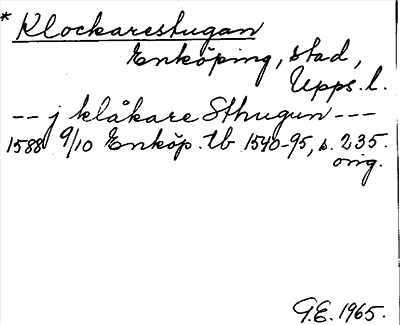 * Klockarestugan
Enköping, stad,
Upps. l.
-- j klåkare Sthugun ---
1588 9/10 Enköp. tb 1540-95, s. 235.
orig.
G.E. 1965.